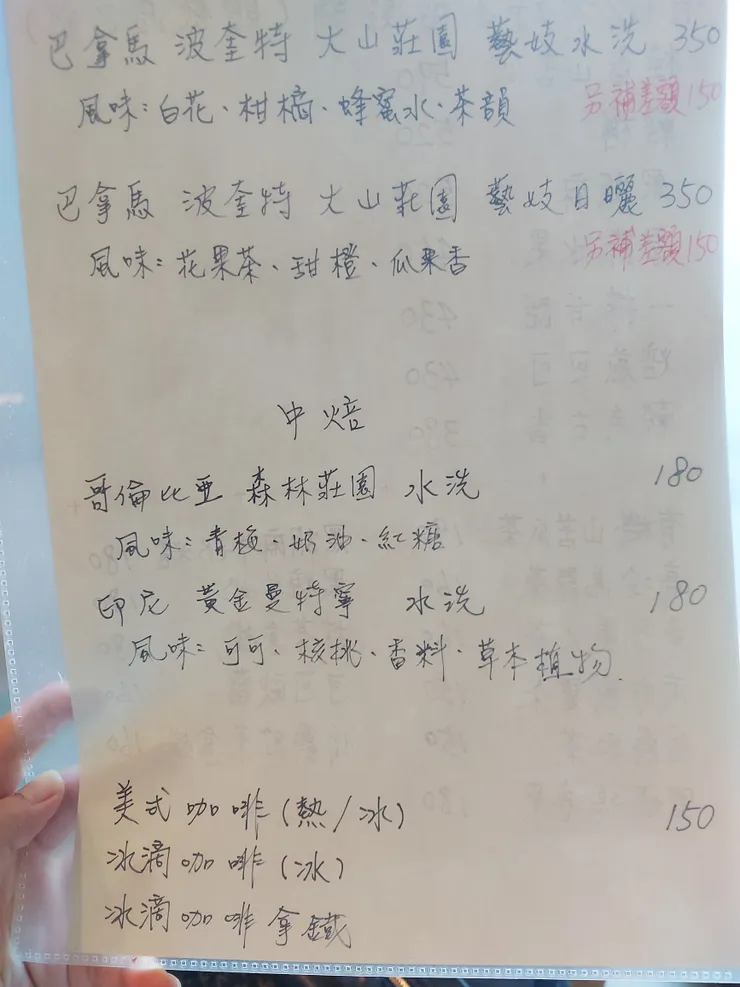 巴拿馬 波奎特 大山莊園 藝妓水洗 350
風味：白花、柑橘、蜂蜜水、茶韻 另補差額150
巴拿馬 波奎特 大山莊園 藝妓日曬 350
風味：花果茶、甜橙、瓜果香 另補差額150
中焙
哥倫比亞 森林莊園 水洗 180
風味：青梅、奶油、紅糖
印尼 黃金曼特寧 水洗 180
風味：可可、核桃、香料、草本植物
美式咖啡(熱/冰) 150
冰滴咖啡(冰)
冰滴咖啡拿鐵